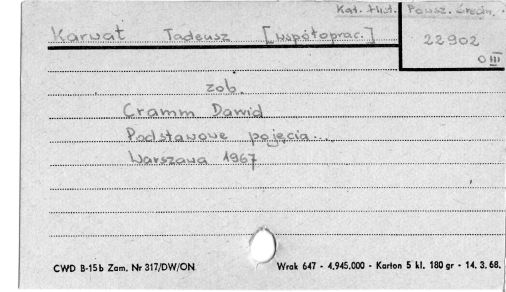 Kat. Hist. Powsz. Średn.
Karwat Tadeusz [współoprac.]
22902
0 III
zob.
Cramm Dawid
Podstawowe pojęcia...
Warszawa 1967
CWD B-15b Zam. Nr 317/DW/ON
Wrak 647 - 4.945.000 - Karton 5 kl. 180 gr - 14. 3. 68.